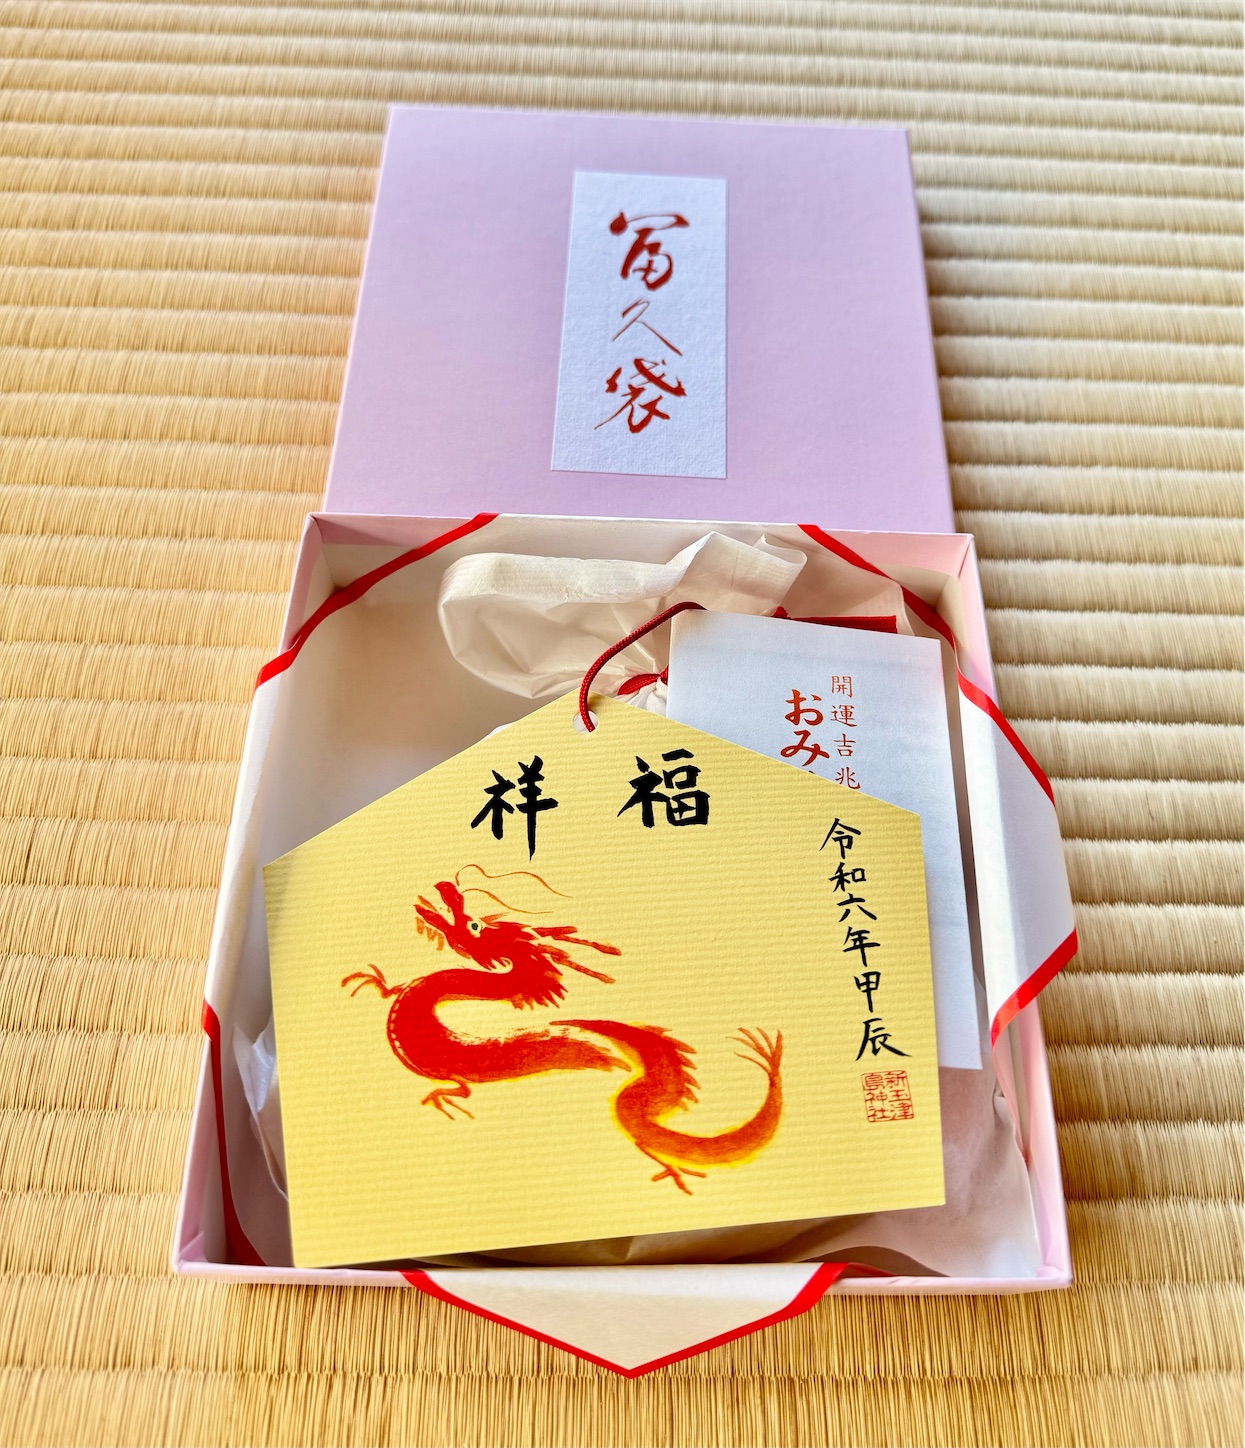 冨久袋
開運吉兆
おみ
福祥
令和六年甲辰
新玉津
島神社